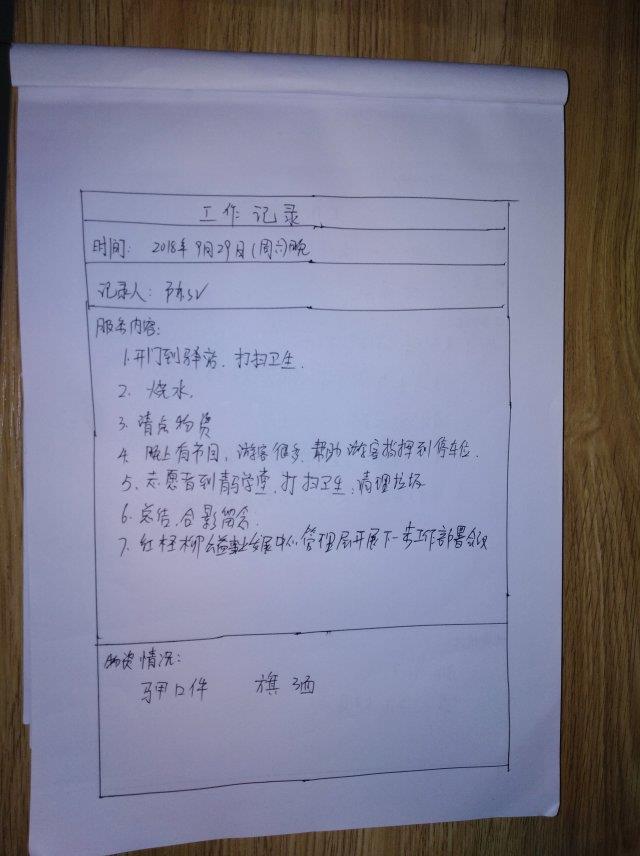 工作记录
时间: 2018年9月29日(周六)晚
记录人:
服务内容:
1.开门到驿站,打扫卫生.
2. 烧水.
3.清点物资
4.晚上有节目,游客很多,帮助游客指挥到停车位.
5.志愿者到青马学堂,打扫卫生,清理垃圾
6.总结,合影留念.
7.红柽柳公益事业发展中心管理层开展下一步工作部署会议
物资情况:
马甲12件 旗3面